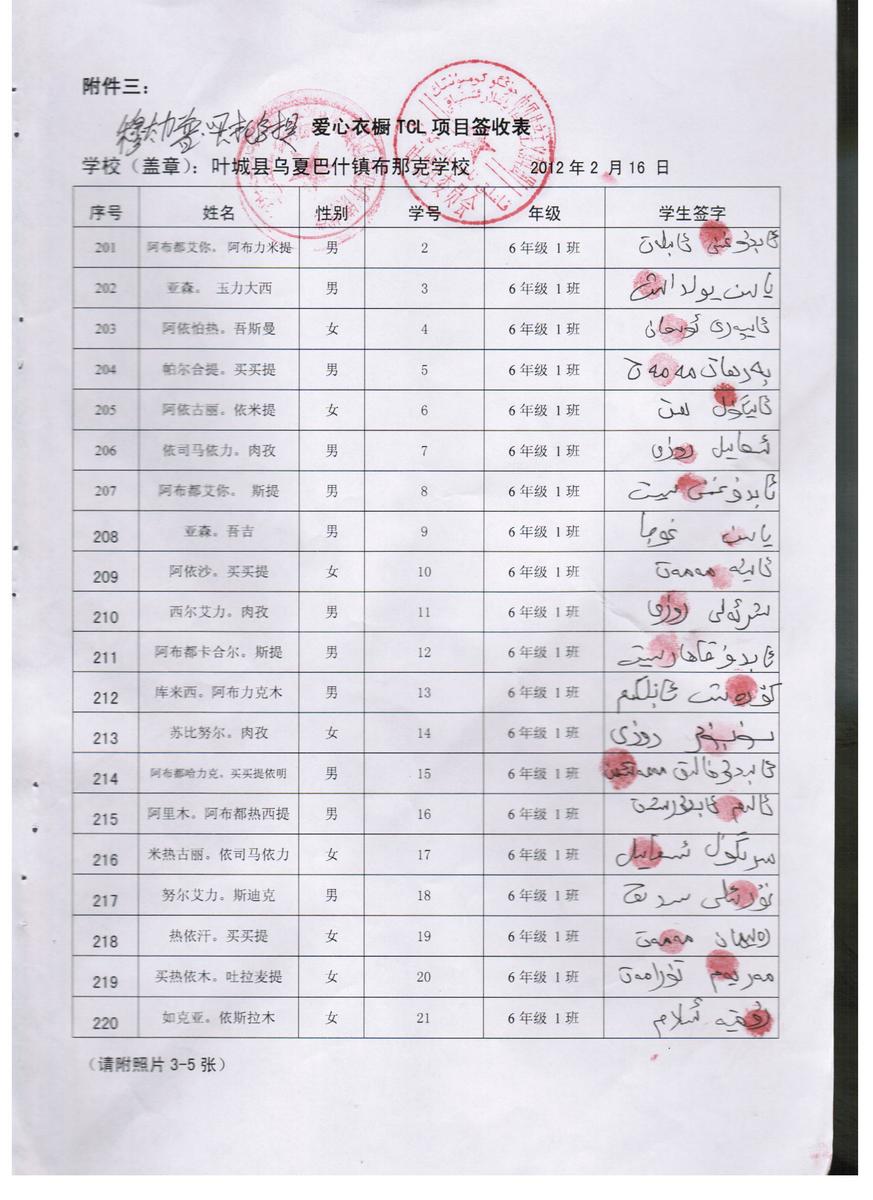 附件三：
爱心衣橱 TCL 项目签收表
学校（盖章）：叶城县乌夏巴什镇布那克学校 2012 年 2 月 16 日
序号 姓名 性别 学号 年级 学生签字
201 阿布都艾你。阿布力米提 男 2 6 年级 1 班 ئابدۇغېنى
202 亚森。 玉力大西 男 3 6 年级 1 班 ياسىن يولداش
203 阿依怕热。吾斯曼 女 4 6 年级 1 班
204 帕尔合提。买买提 男 5 6 年级 1 班 پەرھات مەمەت
205 阿依古丽。依米提 女 6 6 年级 1 班 ئايگۈل
206 依司马依力。肉孜 男 7 6 年级 1 班 روزى
207 阿布都艾你。 斯提 男 8 6 年级 1 班 ئابدۇغېنى سىيت
208 亚森。吾吉 男 9 6 年级 1 班 ياسىن غوجا
209 阿依沙。买买提 女 10 6 年级 1 班 مەمەت
210 西尔艾力。肉孜 男 11 6 年级 1 班 شىرئەلى روزى
211 阿布都卡合尔。斯提 男 12 6 年级 1 班 ئابدۇقاھار سىيت
212 库来西。阿布力克木 男 13 6 年级 1 班
213 苏比努尔。肉孜 女 14 6 年级 1 班 روزى
214 阿布都哈力克。买买提依明 男 15 6 年级 1 班
215 阿里木。阿布都热西提 男 16 6 年级 1 班 ئالىم
216 米热古丽。依司马依力 女 17 6 年级 1 班
217 努尔艾力。斯迪克 男 18 6 年级 1 班
218 热依汗。买买提 女 19 6 年级 1 班 مەمەت
219 买热依木。吐拉麦提 女 20 6 年级 1 班 مەريەم
220 如克亚。依斯拉木 女 21 6 年级 1 班
（请附照片 3-5 张）